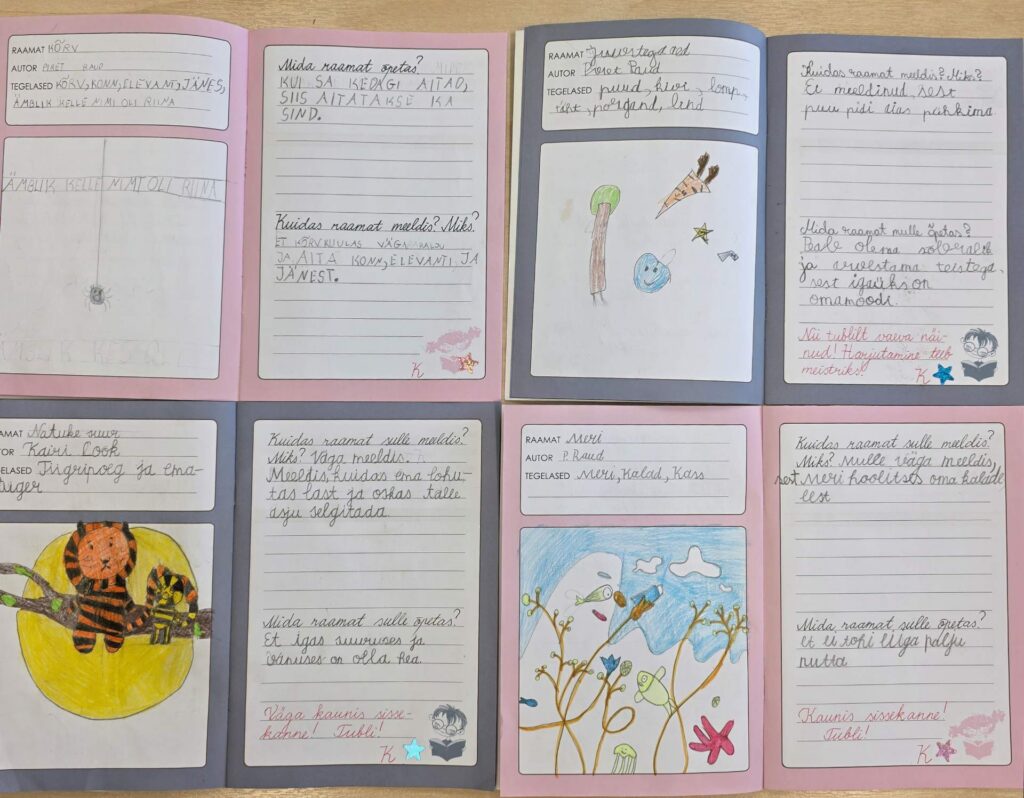 RAAMAT KÕRV
AUTOR PIRET RAUD
TEGELASED KÕRV, KONN, ELEVANT, JÄNES,
ÄMBLIK KELLE NIMI OLI RIINA
ÄMBLIK KELLE NIMI OLI RIINA
Mida raamat õpetas?
KUI SA KEDAGI AITAD,
SIIS AITATAKSE KA
SIND.
Kuidas raamat meeldis? Miks?
ET KÕRV KUULAS VÄGA PALJU
JA AITA KONN, ELEVANTI JA
JÄNEST.
K
RAAMAT
AUTOR Piret Raud
TEGELASED puud, kivi, lomp,
täht, porgand, lind
Kuidas raamat meeldis? Miks?
Ei meeldinud, sest
puu pidi alas pähkima
Mida raamat mulle õpetas?
Peab olema sõbralik
ja arvestama teistega.
sest igaüks on
omamoodi.
Nii tublilt vaeva näi-
nud! Harjutamine teeb
meistriks!
K
AMAT Natuke suur
TOR Kairi Look
ELASED Tiigripoeg ja ema-
tiiger
Kuidas raamat sulle meeldis?
Miks? Väga meeldis.
Meeldis, kuidas ema lohu-
tas last ja oskas talle
asju selgitada.
Mida raamat sulle õpetas?
Et igas suuruses ja
vanuses on olla hea.
Väga kaunis sisse-
kanne! Tubli!
K
RAAMAT Meri
AUTOR P. Raud
TEGELASED Meri, Kalad, Kass
Kuidas raamat sulle meeldis?
Miks? Mulle väga meeldis,
sest Meri hoolitses oma kalade
eest
Mida raamat sulle õpetas?
Et ei tohi liiga palju
nutta
Kaunis sissekanne!
Tubli!
K